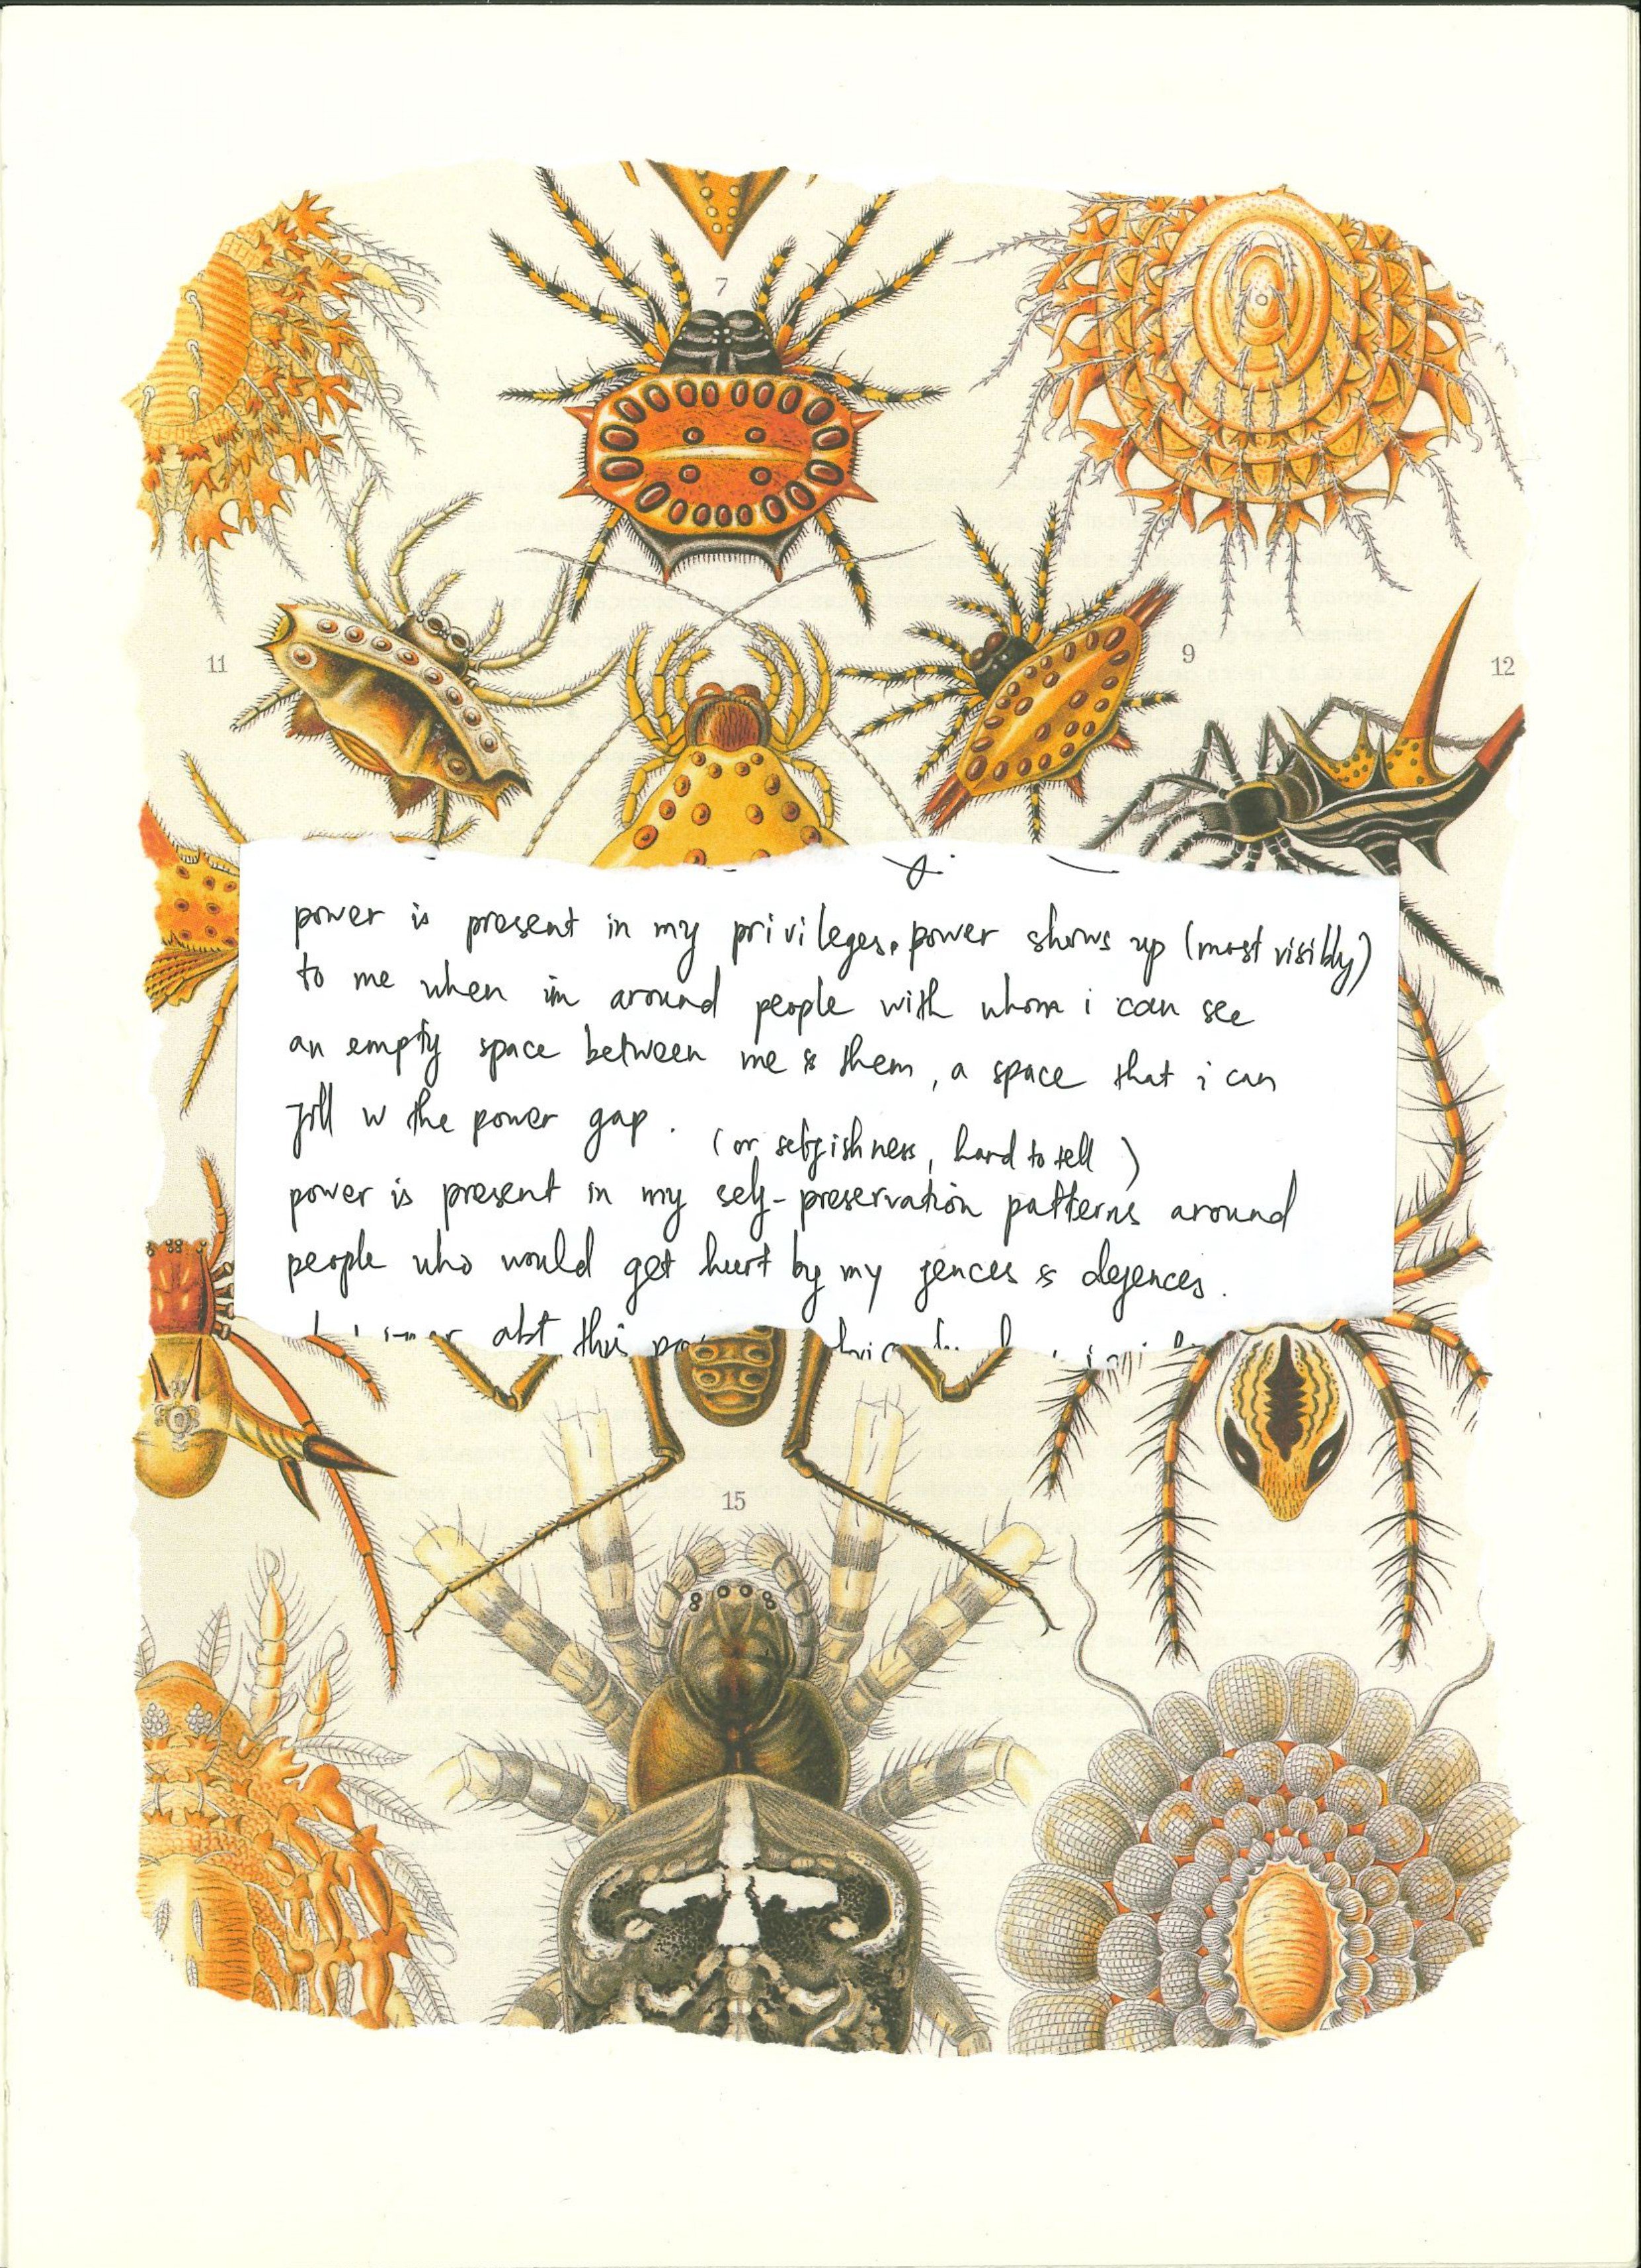 7
11
9
12
power is present in my privileges. power shows up (most visibly)
to me when im around people with whom i can see
an empty space between me & them, a space that i can
fill w the power gap.
(or selfishness, hard to tell)
power is present in my self-preservation patterns around
people who would get hurt by my fences & defences.
abt this
15